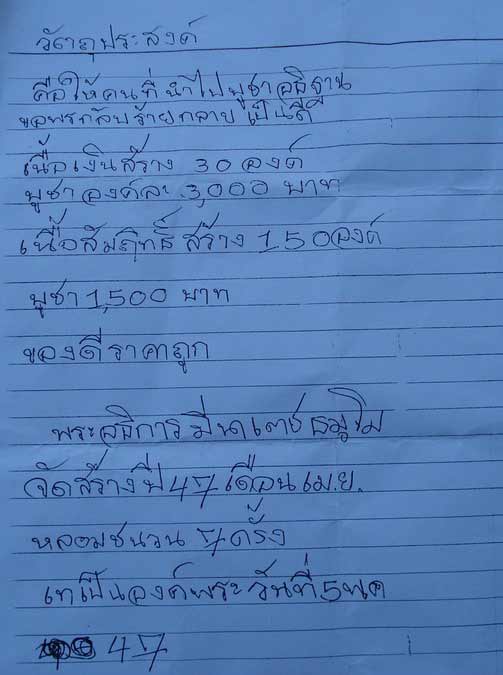 วัตถุประสงค์
คือให้คนที่นำไปบูชาอธิฐาน
ขอพรกลับร้ายกลายเป็นดี
เนื้อเงินสร้าง 30 องค์
บูชาองค์ละ 3,000 บาท
เนื้อสัมฤทธิ์ สร้าง 150องค์
บูชา 1,500 บาท
ของดีราคาถูก
พระอธิการ
จัดสร้างปี 47 เดือน เม.ย.
หลอมชนวน 7 ครั้ง
เทเป็นองค์พระ วันที่ 5 พค
47